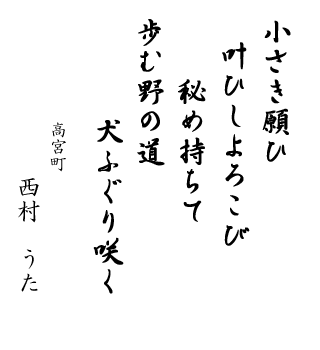 小さき願ひ
叶ひしよろこび
秘め持ちて
歩む野の道
犬ふぐり咲く
高宮町
西村 うた